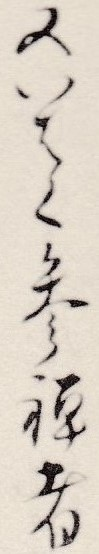 又いはく参禅者